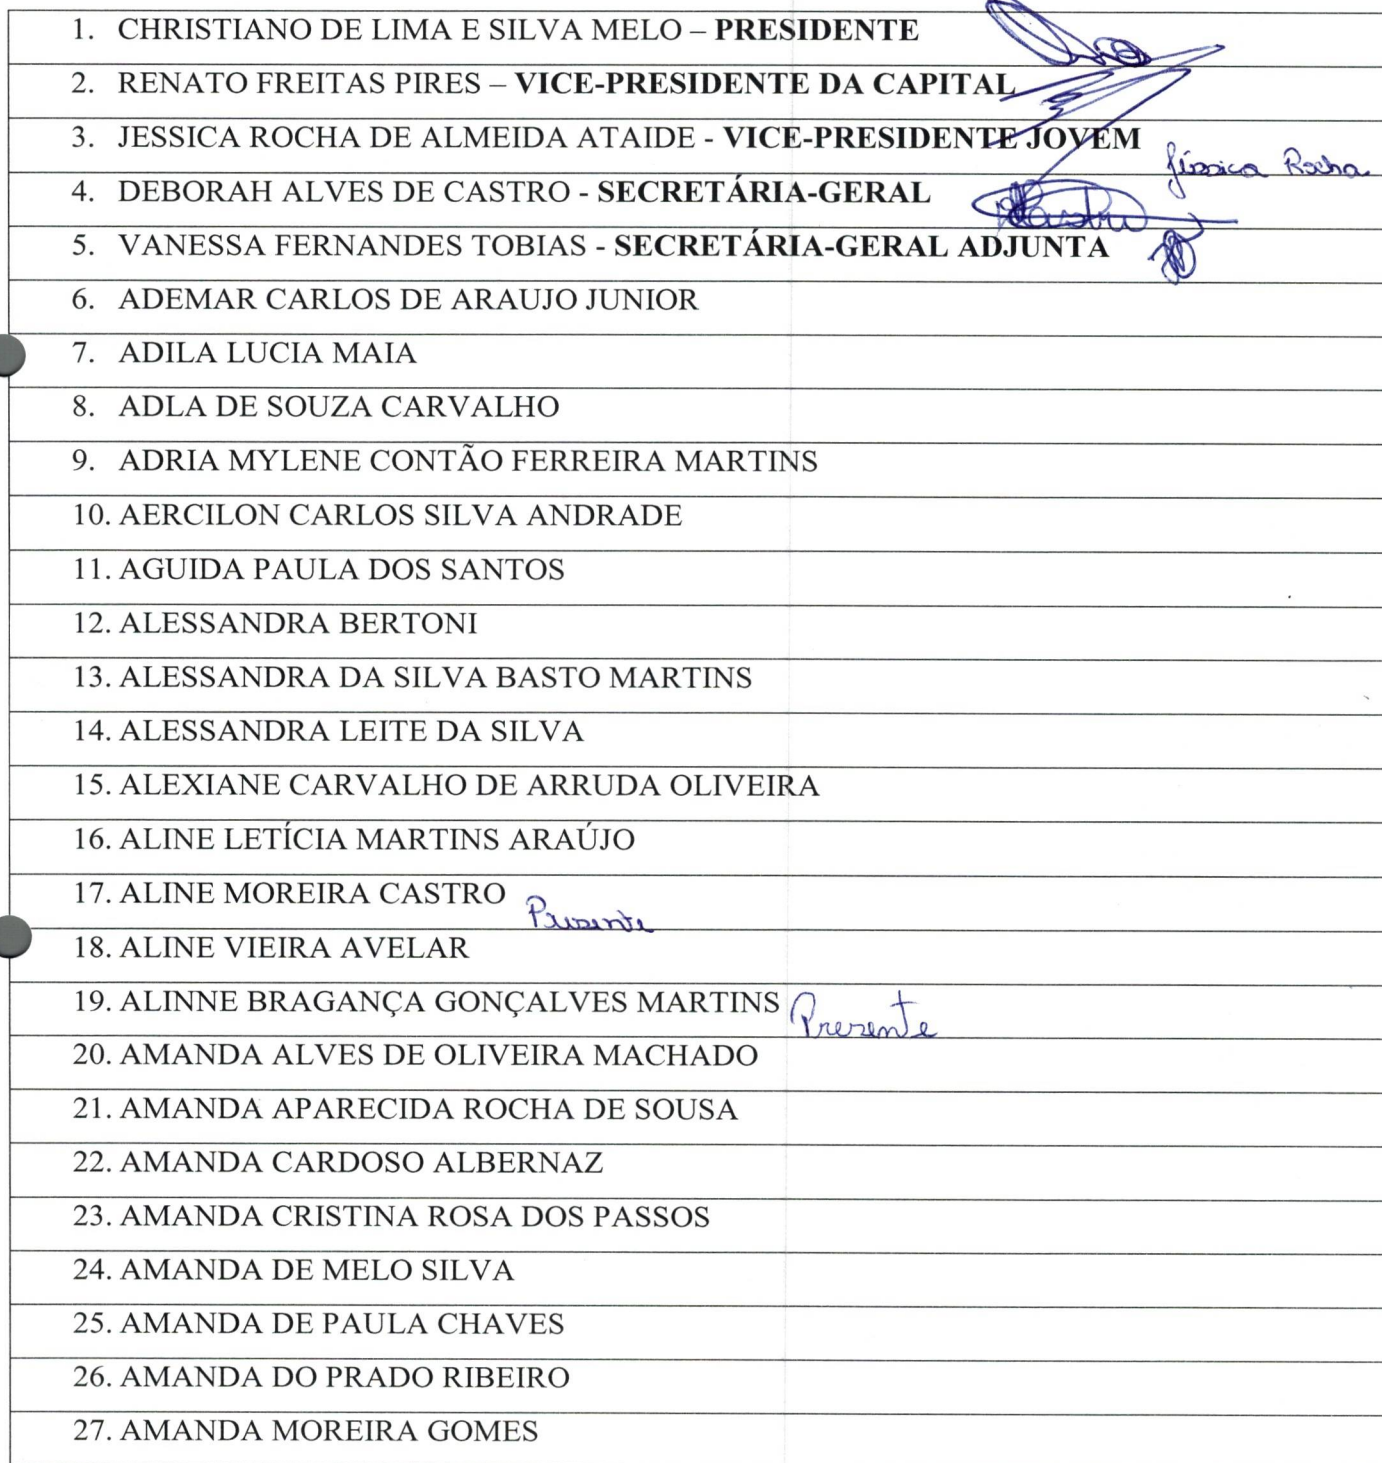 1. CHRISTIANO DE LIMA E SILVA MELO – PRESIDENTE
2. RENATO FREITAS PIRES – VICE-PRESIDENTE DA CAPITAL
3. JESSICA ROCHA DE ALMEIDA ATAIDE - VICE-PRESIDENTE JOVEM Jéssica Rocha
4. DEBORAH ALVES DE CASTRO - SECRETÁRIA-GERAL
5. VANESSA FERNANDES TOBIAS - SECRETÁRIA-GERAL ADJUNTA
6. ADEMAR CARLOS DE ARAUJO JUNIOR
7. ADILA LUCIA MAIA
8. ADLA DE SOUZA CARVALHO
9. ADRIA MYLENE CONTÃO FERREIRA MARTINS
10. AERCILON CARLOS SILVA ANDRADE
11. AGUIDA PAULA DOS SANTOS
12. ALESSANDRA BERTONI
13. ALESSANDRA DA SILVA BASTO MARTINS
14. ALESSANDRA LEITE DA SILVA
15. ALEXIANE CARVALHO DE ARRUDA OLIVEIRA
16. ALINE LETÍCIA MARTINS ARAÚJO
17. ALINE MOREIRA CASTRO Presente
18. ALINE VIEIRA AVELAR
19. ALINNE BRAGANÇA GONÇALVES MARTINS Presente
20. AMANDA ALVES DE OLIVEIRA MACHADO
21. AMANDA APARECIDA ROCHA DE SOUSA
22. AMANDA CARDOSO ALBERNAZ
23. AMANDA CRISTINA ROSA DOS PASSOS
24. AMANDA DE MELO SILVA
25. AMANDA DE PAULA CHAVES
26. AMANDA DO PRADO RIBEIRO
27. AMANDA MOREIRA GOMES